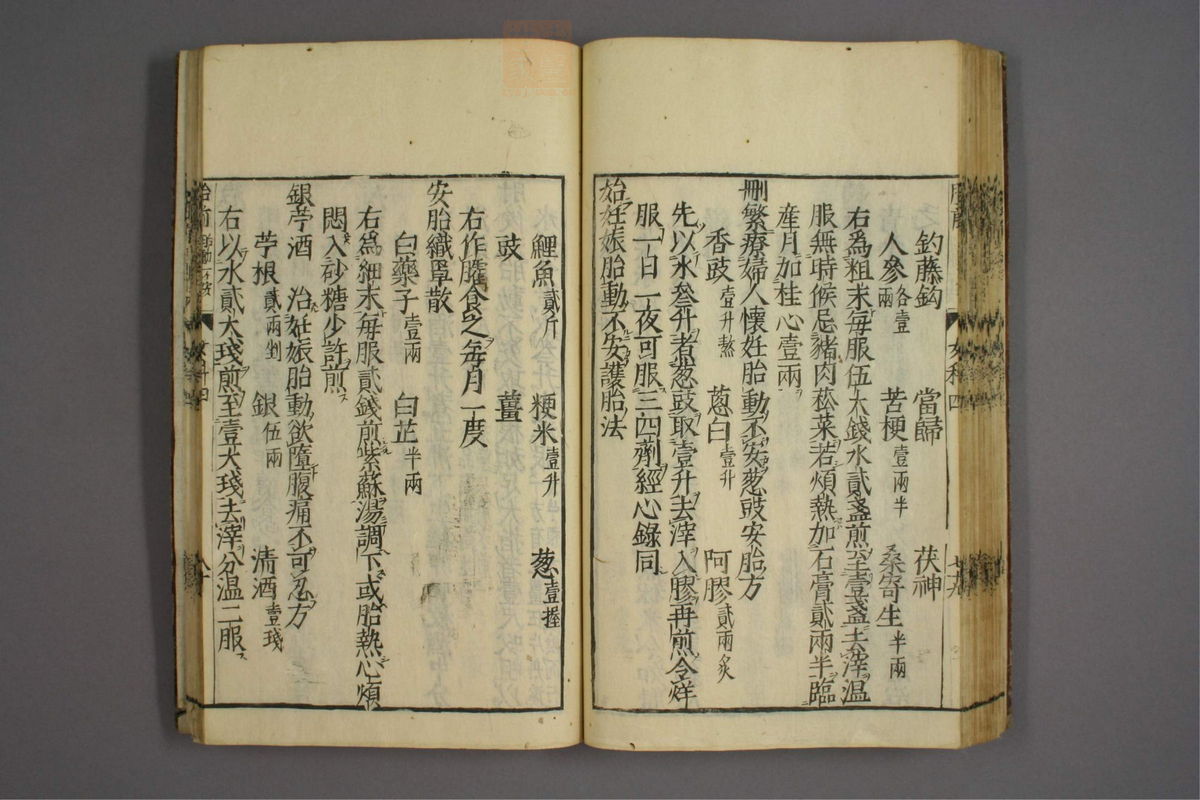 釣藤鈎 當歸 茯神
人參各壹兩 苦梗壹兩半 桑寄生半兩
右為粗末每服伍大錢水貳盞煎至壹盞去滓溫
服無時候忌豬肉菘菜若煩熱加石膏貳兩半臨
產月加桂心壹兩
刪繁療婦人懷妊胎動不安葱豉安胎方
香豉壹升熬 葱白壹升 阿膠貳兩炙
先以水參升煮葱豉取壹升去滓入膠再煎令烊
服一日一夜可服三四劑經心錄同
始妊娠胎動不安護胎法
鯉魚貳斤 粳米壹升 葱壹握
豉 薑
右作臛食之每月一度
安胎鐵罩散
白藥子壹兩 白芷半兩
右為細末每服貳錢煎紫蘇湯調下或胎熱心煩
悶入砂糖少許煎
銀苧酒 治妊娠胎動欲墮腹痛不可忍方
苧根貳兩剉 銀伍兩 清酒壹琖
右以水貳大琖煎至壹大琖去滓分溫二服